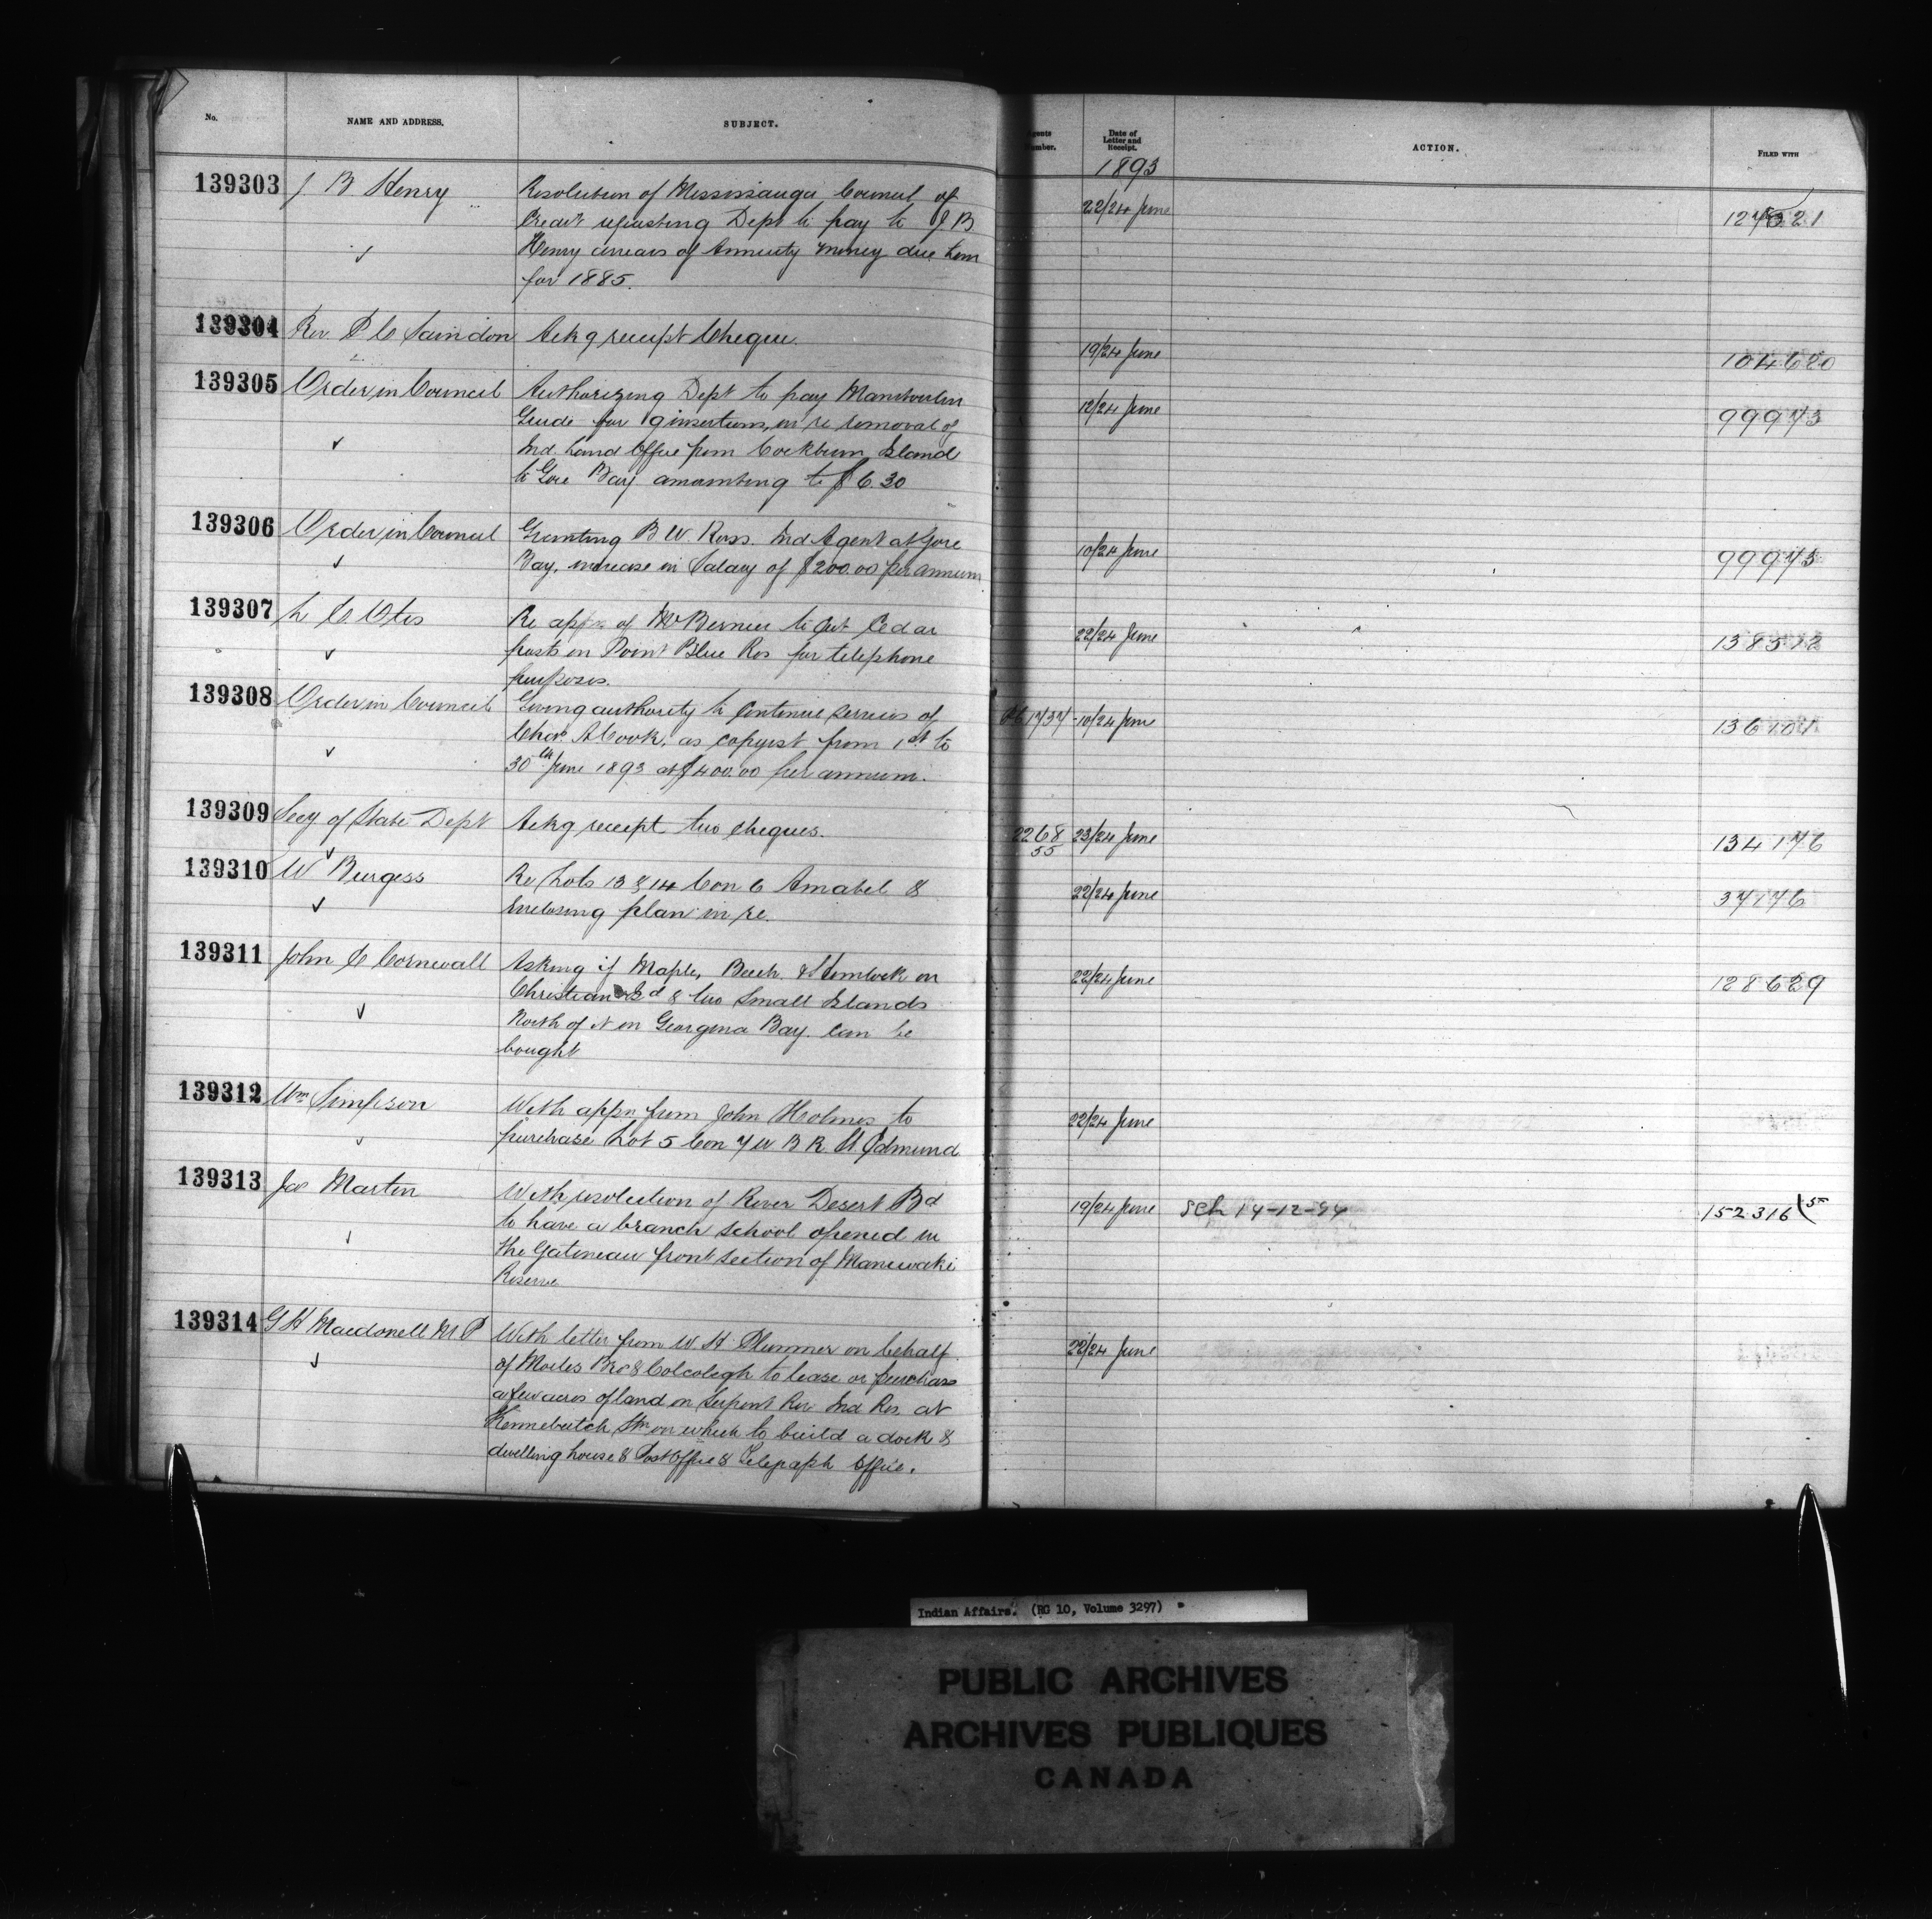 No.
NAME AND ADDRESS.
SUBJECT.
Agents Number.
Date of Letter and Receipt.
ACTION.
FILED WITH
1893
139303 J B Henry Resolution of Mississauga Council of 22/24 June
Credit requesting Dept to pay to J B
Henry arrears of Annuity money due him
for 1885.
139304 Rev. P C Saindon Ackg receipt Cheque. 19/24 June 104620
139305 Order in Council Authorizing Dept to pay Manitoulin 12/24 June 99973
Guide for 9 insertions, in re removal of
Ind. Land Office from Cockburn Island
to Gore Bay amounting to $6.30
139306 Order in Council Granting B W. Ross. Ind Agent at Gore 10/24 June 99973
Bay, increase in Salary of $200.00 per annum
139307 L C Otis Re appn of Mr Bernier to Cut Cedar 22/24 June
posts on Point Blue Res for telephone
purposes.
139308 Order in Council Giving authority to Continue services of 10/24 June
Chas. A Cook, as copyist from 1st to
30th June 1893 at $400.00 per annum.
139309 Secy of State Dept Ackg receipt two cheques. 2268/55 23/24 June 134176
139310 W Burgess Re Lots 13 & 14 Con 6 Amabel & 22/24 June 37776
Enclosing plan in re.
139311 John C Cornewall Asking if Maple, Beech & Hemlock on 22/24 June 128629
Christian Isd & two Small Islands
North of it in Georgina Bay. Can be
bought
139312 Wm Simpson With appn from John Holmes to 22/24 June
purchase Lot 5 Con 7 W B R. St. Edmund
139313 Jas Martin With resolution of River Desert Bd 19/24 June Sch 14-12-94 152316
to have a branch school opened in
the Gatineau front section of Maniwaki
Reserve
139314 G H Macdonell M P With letter from W. H. Plummer on behalf 22/24 June
of Moiles Bro & Colcolegh to lease or purchase
a few acres of land on Serpent Riv Ind Res. at
Kennebutch Stn on which to build a dock &
dwelling house & Post Office & Telegraph Office.
Indian Affairs. (RG 10, Volume 3297)
PUBLIC ARCHIVES
ARCHIVES PUBLIQUES
CANADA